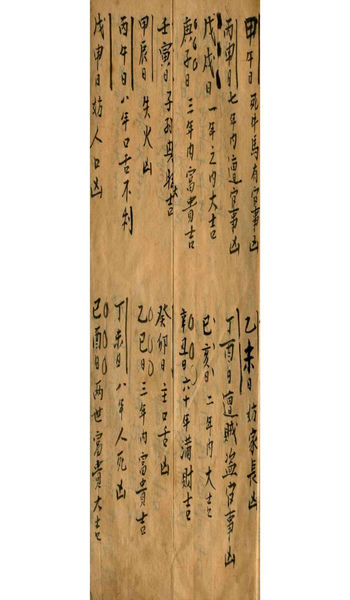 甲午日死牛馬有官事凶
乙未日妨家長凶
丙申日七年内遭官事凶
丁酉日遭賊盗官事凶
戊戌日一年之内大吉
己亥日二年内大吉
庚子日三年内富貴吉
辛丑日六十年満財吉
壬寅日子孙興旺吉
癸卯日主口舌凶
甲辰日失火凶
乙巳日三年内富貴吉
丙午日八年口舌不利
丁未日八年人死凶
戊申日妨人口凶
己酉日两世富貴大吉